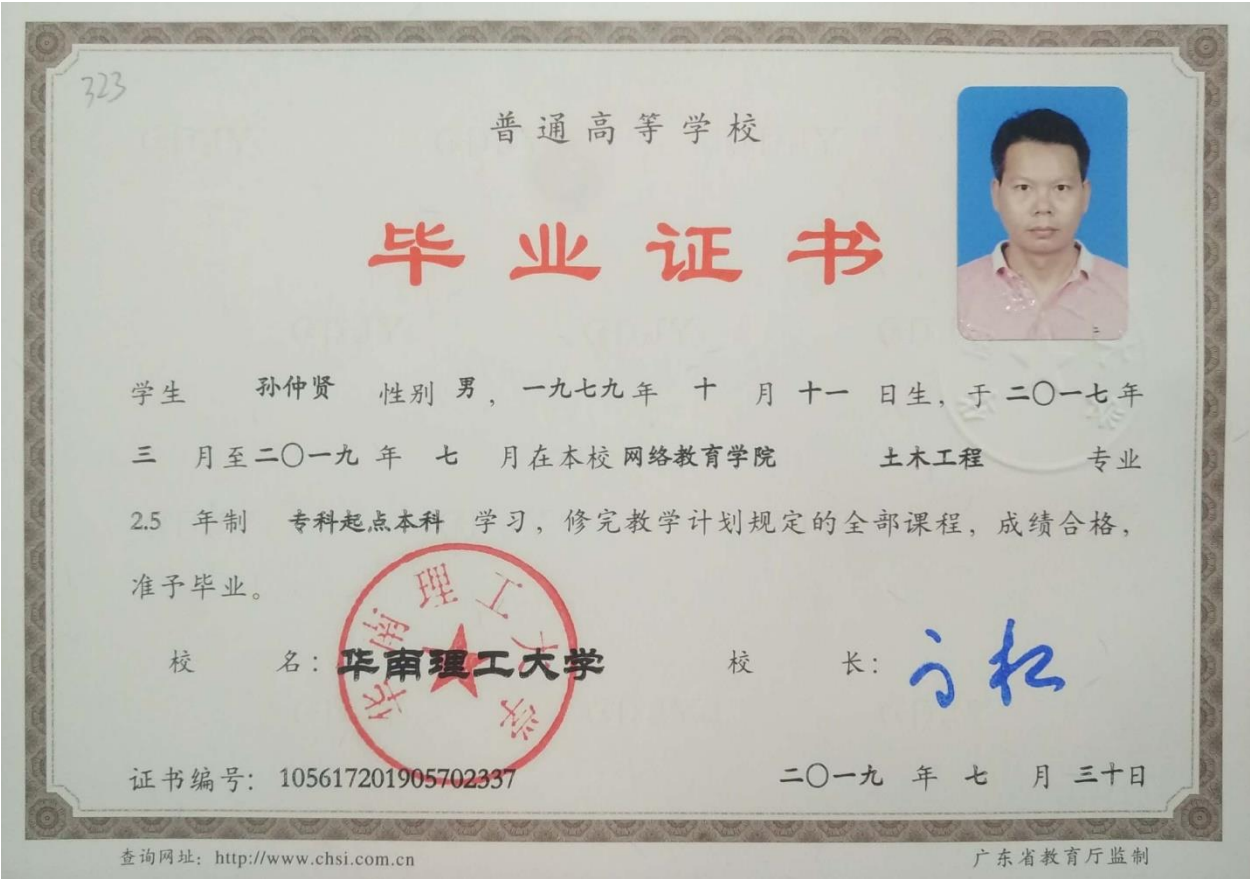 323
普通高等学校
毕业证书
学生 孙仲贤 性别 男，一九七九年 十 月 十一 日生，于 二〇一七年
三 月至二〇一九 年 七 月在本校 网络教育学院 土木工程 专业
2.5 年制 专科起点本科 学习，修完教学计划规定的全部课程，成绩合格，
准予毕业。
华南理工大学
校 名：华南理工大学 校 长：
证书编号：105617201905702337 二〇一九 年 七 月 三十日
查询网址：http://www.chsi.com.cn 广东省教育厅监制